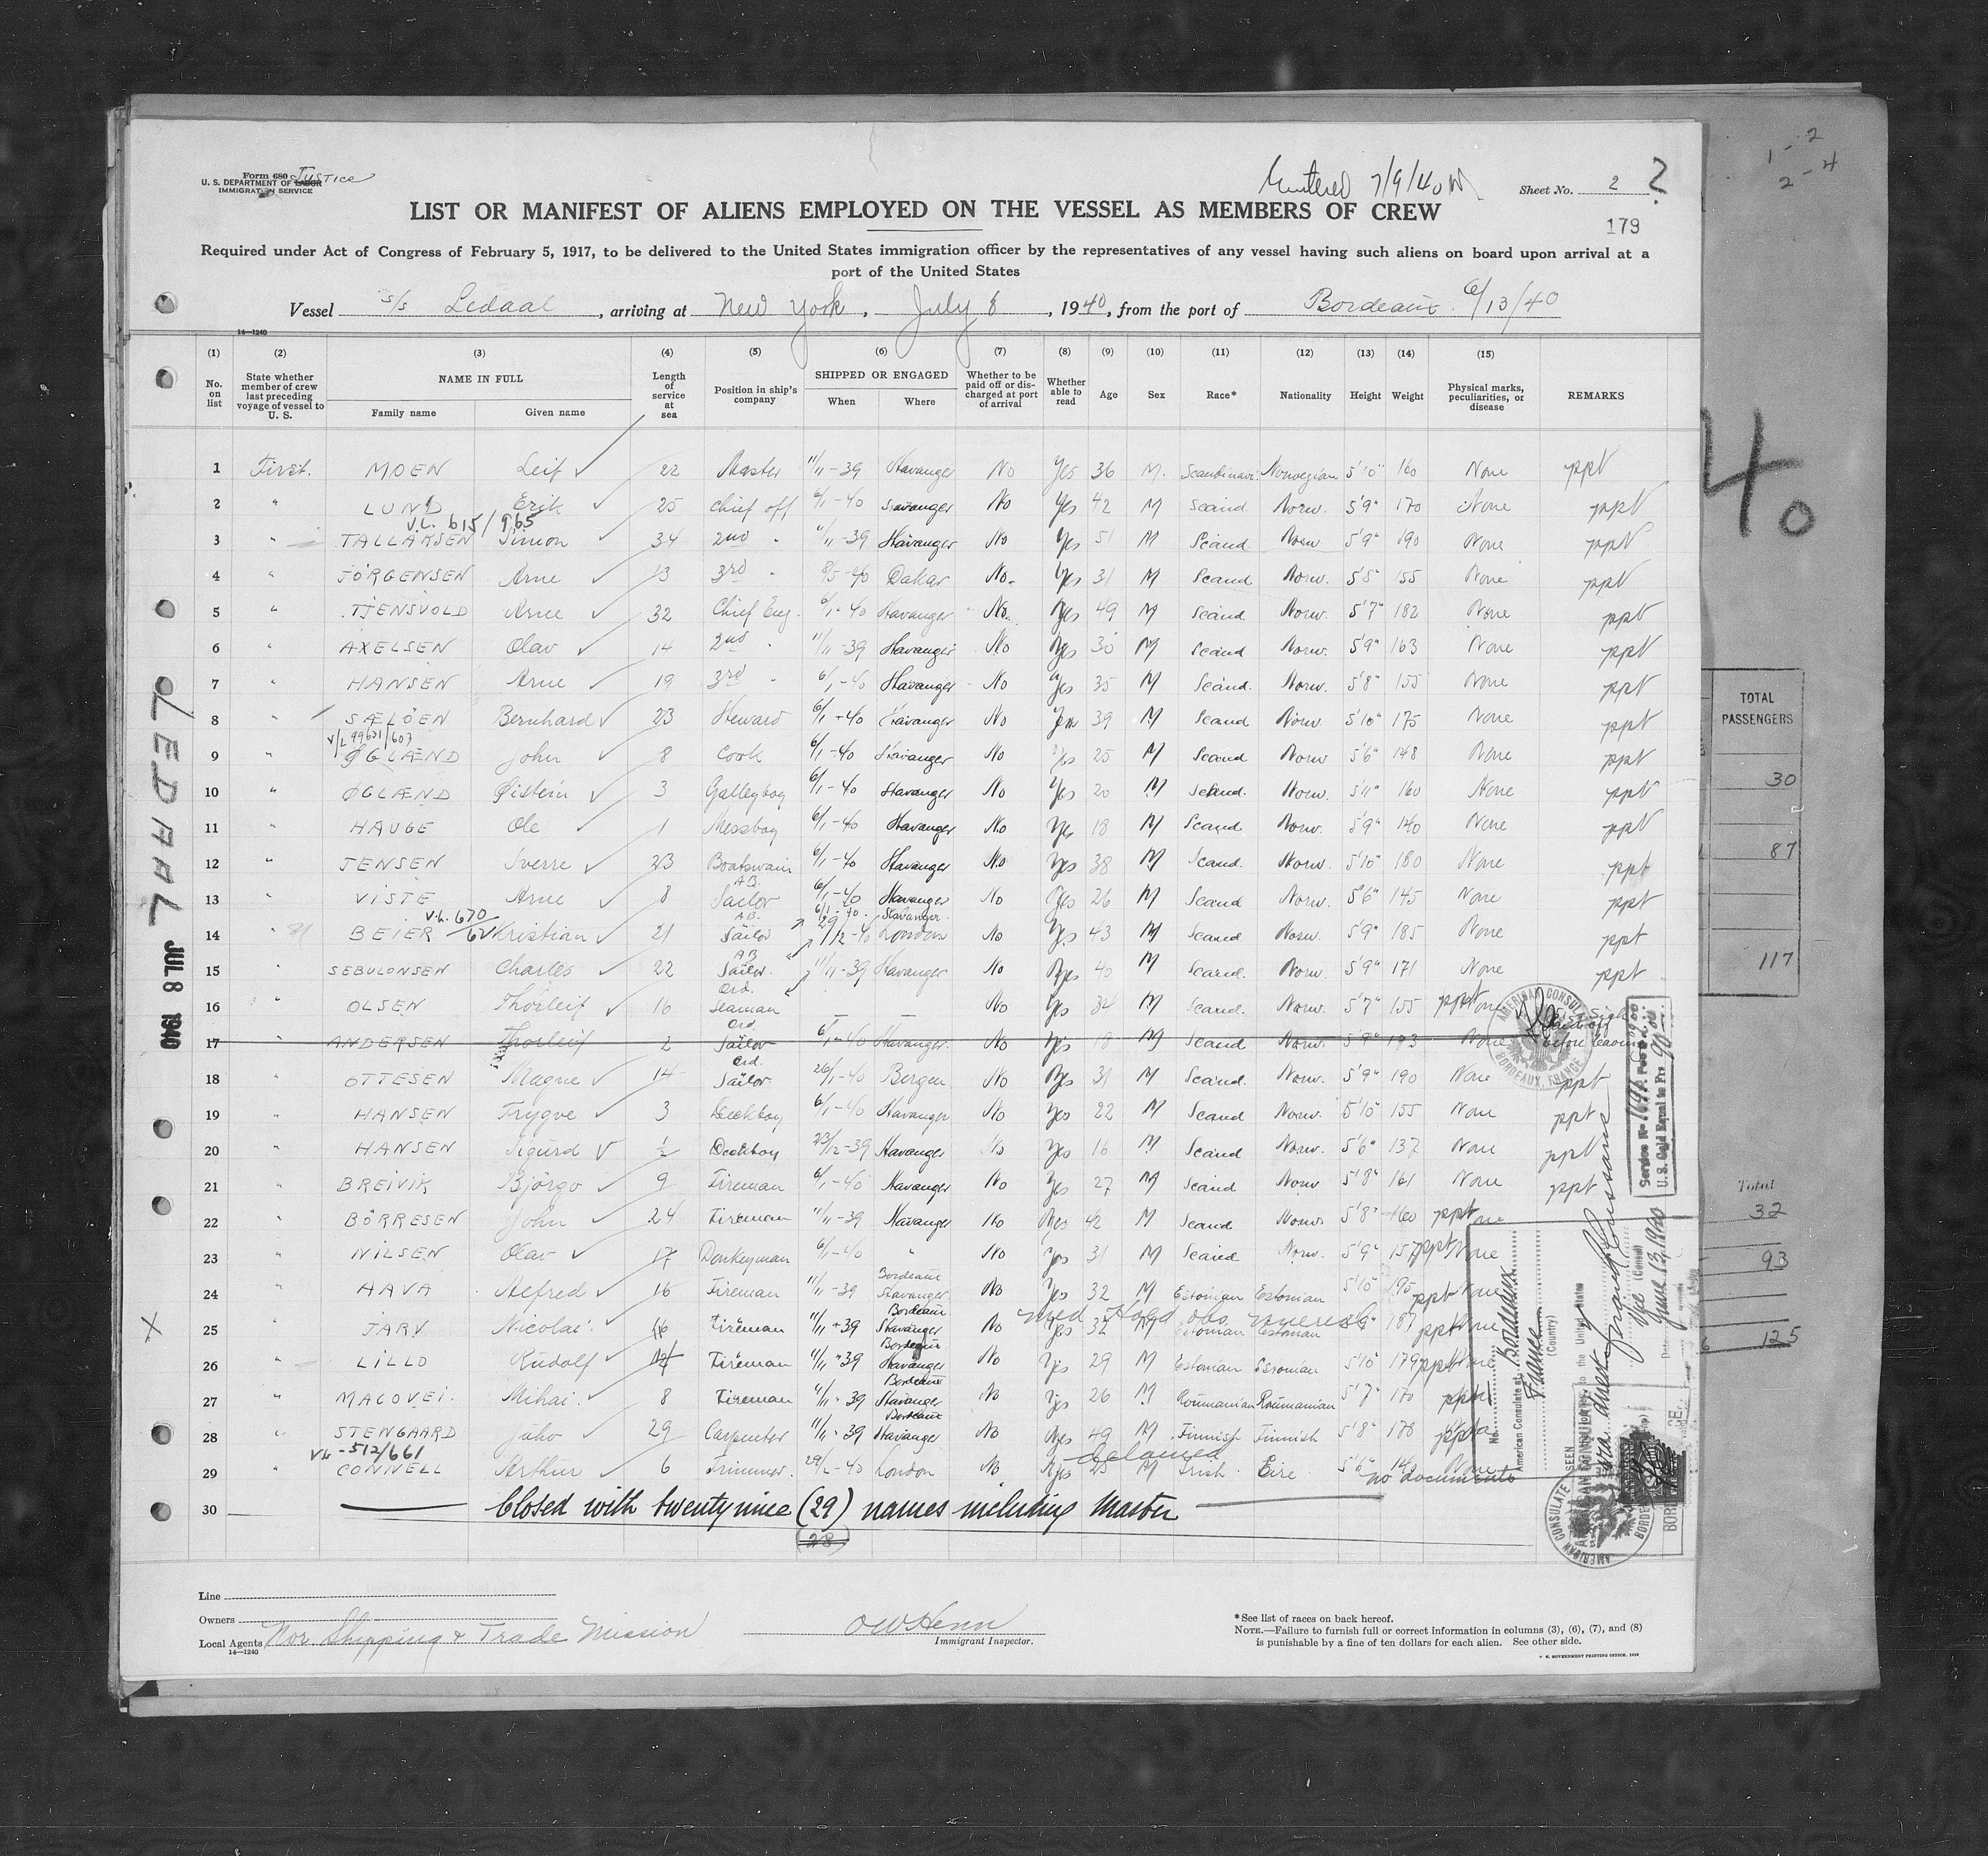 Form 680
U. S. DEPARTMENT OF LABOR Justice
IMMIGRATION SERVICE
Entered 7/9/40
Sheet No. 2 2
179
LIST OR MANIFEST OF ALIENS EMPLOYED ON THE VESSEL AS MEMBERS OF CREW
Required under Act of Congress of February 5, 1917, to be delivered to the United States immigration officer by the representatives of any vessel having such aliens on board upon arrival at a
port of the United States
Vessel S/S Ledaal, arriving at New York, July 8, 1940, from the port of Bordeaux 6/13/40
14—1240
(1) No. on list (2) State whether member of crew last preceding voyage of vessel to U. S. (3) NAME IN FULL Family name Given name (4) Length of service at sea (5) Position in ship's company (6) SHIPPED OR ENGAGED When Where (7) Whether to be paid off or discharged at port of arrival (8) Whether able to read (9) Age (10) Sex (11) Race* (12) Nationality (13) Height (14) Weight (15) Physical marks, peculiarities, or disease REMARKS
1 First. MOEN Leif 22 Master 11/11-39 Stavanger No Yes 36 M. Scandinavi. Norwegian 5'10" 160 None ppt
2 " LUND Erik 25 Chief off 6/1-40 Stavanger No Yes 42 M Scand. Norw. 5'9" 170 None ppt
V.L. 615/965
3 " TALLAKSEN Simon 34 2nd " 11/11-39 Stavanger No Yes 51 M Scand. Norw 5'9" 190 None ppt
4 " JÖRGENSEN Arne 13 3rd " 8/5-40 Dakar No. Yes 31 M Scand Norw. 5'8" 155 None ppt
5 " TJENSVOLD Arne 32 Chief Eng. 6/1-40 Stavanger No. Yes 49 M Scand Norw. 5'7" 182 None ppt
6 " AXELSEN Olav 14 2nd " 11/11-39 Stavanger No Yes 30 M Scand Norw. 5'9" 163 None ppt
7 " HANSEN Arne 19 3rd " 6/1-40 Stavanger No Yes 35 M Scand. Norw. 5'8" 155 None ppt
8 " SÆLÖEN Bernhard 23 Steward 6/1-40 Stavanger No Yes 39 M Scand Norw. 5'10" 175 None ppt
V/L 99631/603
9 " ØGLÆND John 8 Cook 6/1-40 Stavanger No Yes 25 M Scand Norw 5'6" 148 None ppt
10 " ØGLÆND Øistein 3 Galleyboy 6/1-40 Stavanger No Yes 20 M Scand. Norw. 5'11" 160 None ppt
11 " HAUGE Ole 1 Messboy 6/1-40 Stavanger No Yes 18 M Scand Norw. 5'9" 140 None ppt
12 " JENSEN Sverre 23 Boatswain 6/1-40 Stavanger No Yes 38 M Scand. Norw. 5'10" 180 None ppt
13 " VISTE Arne 8 A.B. Sailor 6/1-40 Stavanger No Yes 26 M Scand Norw. 5'6" 145 None ppt
V.L. 670/62 6/1-40. Stavanger.
14 " BEIER Kristian 21 A.B. Sailor 29/12-40 London No Yes 43 M Scand. Norw. 5'9" 185 None ppt
15 " SEBULONSEN Charles 22 A.B. Sailor. 11/11-39 Stavanger No Yes 40 M Scand. Norw. 5'9" 171 None ppt
16 " OLSEN Thorleif 16 Ord. Seaman No Yes 34 M Scand. Norw. 5'7" 155 None ppt
17 " ANDERSEN Thorleif 2 Ord. Sailor 6/1-40 Stavanger. No Yes 18 M Scand Norw. 5'9" 183 None before leaving
18 " OTTESEN Magne 14 Ord. Sailor 26/1-40 Bergen No Yes 31 M Scand. Norw. 5'9" 190 None ppt
19 " HANSEN Trygve 3 Deckboy 6/1-40 Stavanger No Yes 22 M Scand Norw. 5'10" 155 None ppt
20 " HANSEN Sigurd ½ Deckboy 23/12-39 Stavanger No Yes 16 M Scand Norw. 5'6" 137 None ppt
21 " BREIVIK Björgo 9 Fireman 6/1-40 Stavanger No Yes 27 M Scand Norw 5'8" 161 None ppt
22 " BÖRRESEN John 24 Fireman 11/11-39 Stavanger No Yes 42 M Scand Norw 5'8" 160 None ppt
23 " NILSEN Olav 17 Donkeyman 6/1-40 " No Yes 31 M Scand Norw. 5'9" 157 None ppt
24 " HAVA Alfred 16 Fireman 11/11-39 Bordeaux Stavanger No Yes 32 M Estonian Estonian 5'10" 195 None ppt
med Hold obs venereal
25 " JARV Nicolai. 16 Fireman 11/11-39 Bordeaux Stavanger No Yes 32 M Estonian Estonian 187 None ppt
26 " LILLO Rudolf Fireman 11/11-39 Bordeaux Stavanger No Yes 29 M Estonian Estonian 5'10" 179 None ppt
27 " MACOVEI. Mihai. 8 Fireman 11/11-39 Bordeaux Stavanger No Yes 26 M Roumanian Roumanian 5'7" 170 ppt
28 " STENGAARD Juho 29 Carpenter 11/11-39 Bordeaux Stavanger No Yes 49 M Finnish Finnish 5'8" 178 ppt
VL-512/661 detained
29 " CONNELL Arthur 6 Trimmer. 29/2-40 London No Yes 25 M Irish. Eire 5'6" 140 None no documents
30 Closed with twentynine (29) names including Master
(28)
Line
Owners
Local Agents Nor Shipping & Trade Mission
14—1240
OW Henn
Immigrant Inspector.
*See list of races on back hereof.
NOTE.—Failure to furnish full or correct information in columns (3), (6), (7), and (8)
is punishable by a fine of ten dollars for each alien. See other side.
LEDAAL
JUL 8 1940
X
AMERICAN CONSULATE
BORDEAUX, FRANCE
U.S. Gold Equal to Frs 90
SEEN
No.
American Consulate at Bordeaux
France
(Country)
Vice (Consul)
June 13, 1940
AMERICAN CONSULATE
1-2
2-4
40
TOTAL
PASSENGERS
30
87
117
Total
32
93
125